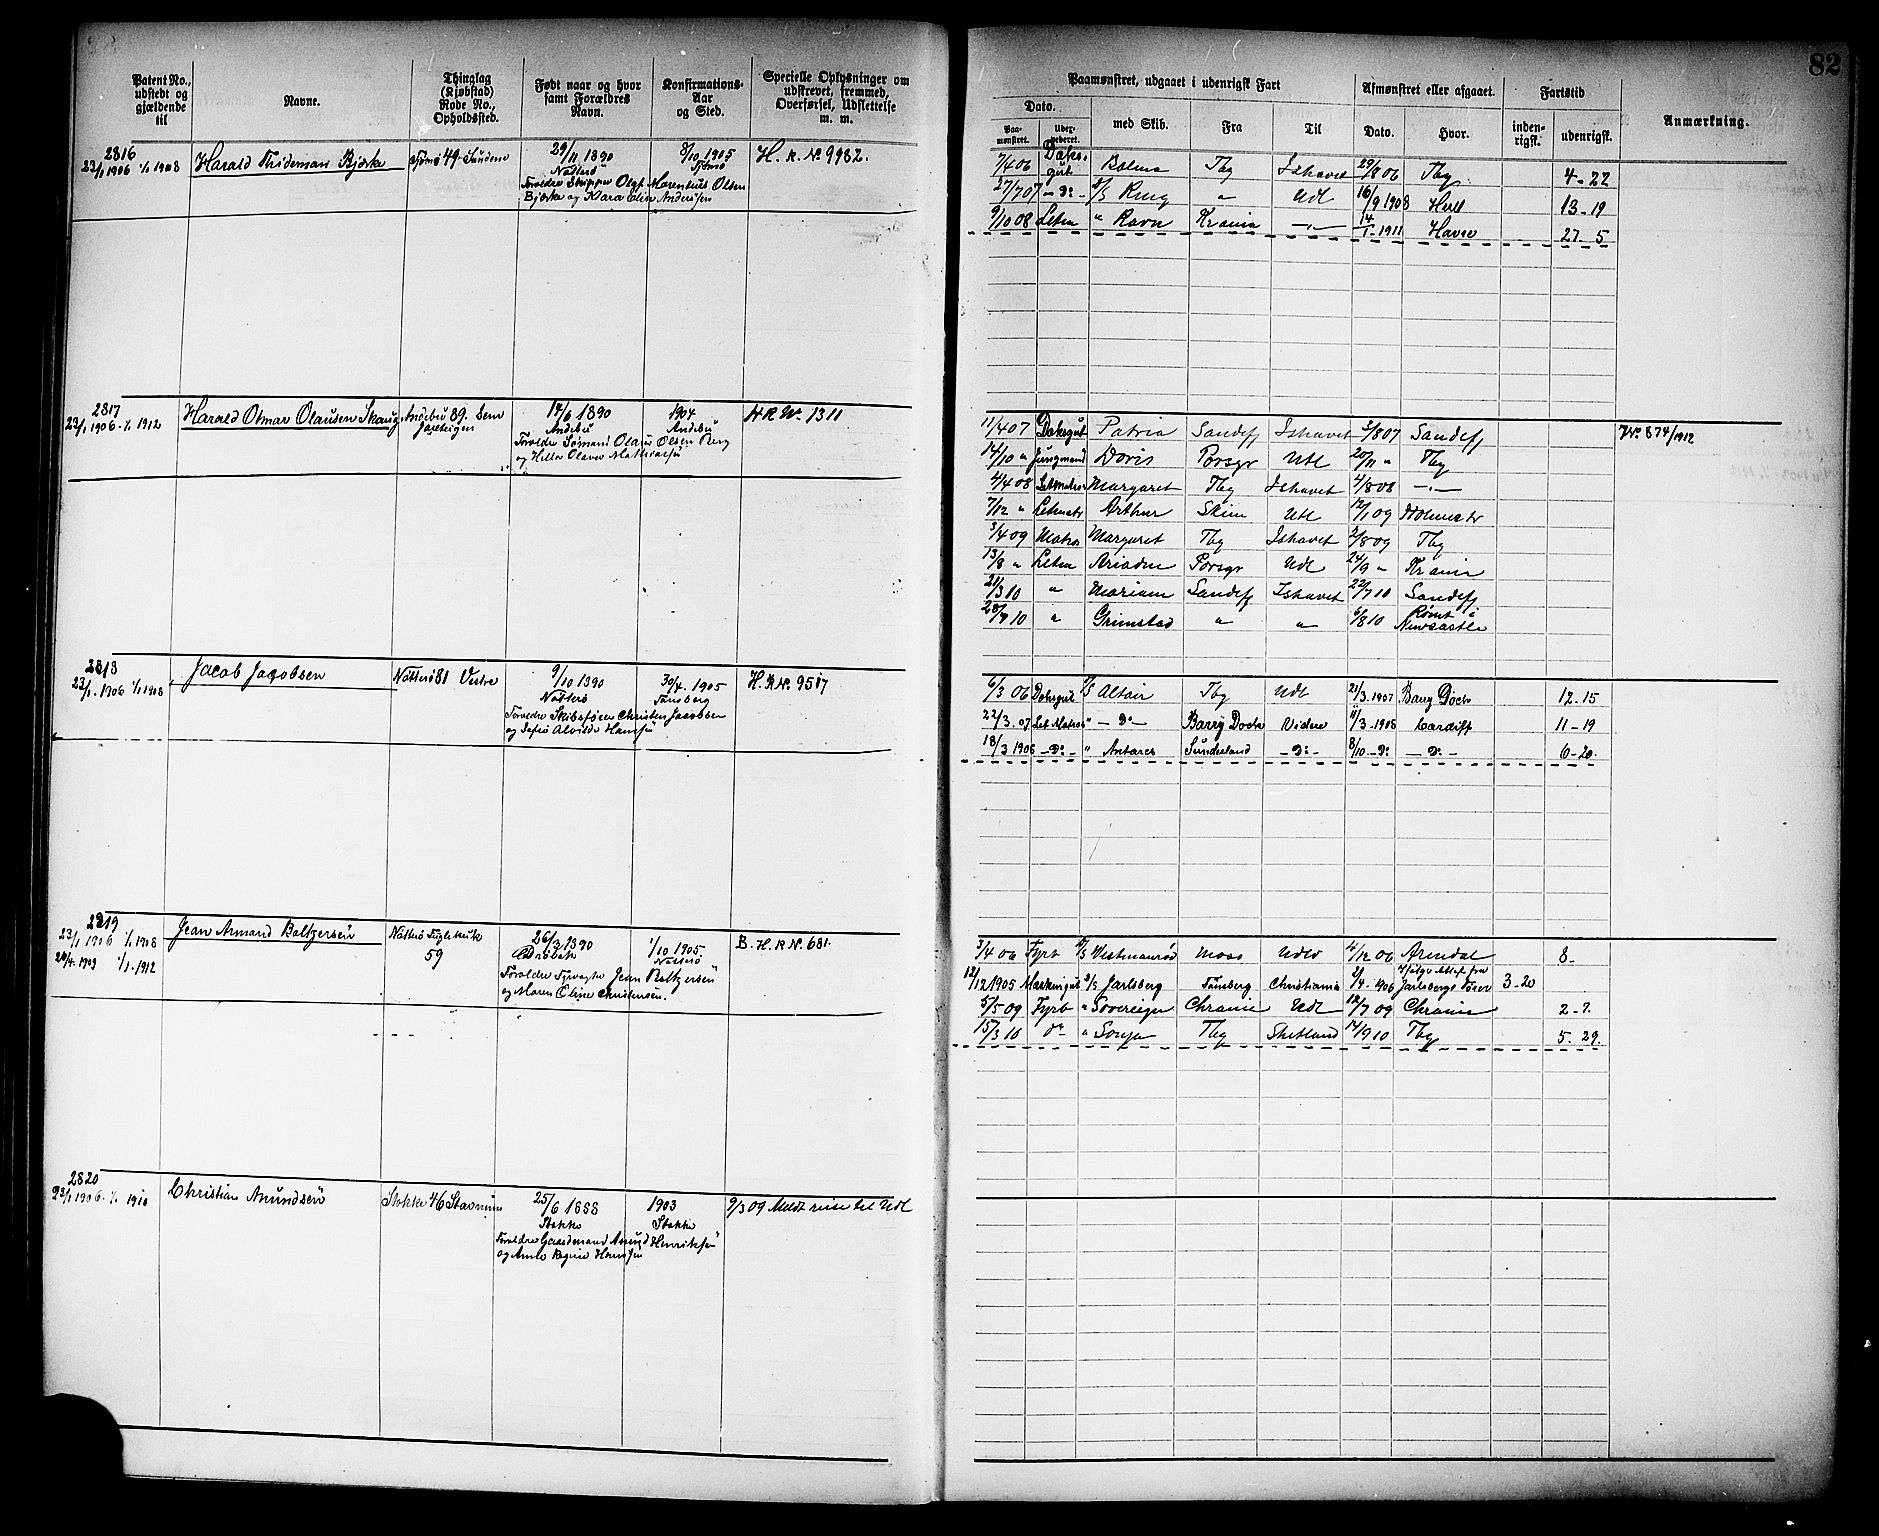 82
Patent No., udstedt og gjældende til
Navne.
Thinglag (Kjøbstad) Rode No., Opholdssted.
Født naar og hvor samt Forældres Navn.
Konfirmations-Aar og Sted.
Specielle Oplysninger om udskrevet, fremmed, Overførsel, Udslettelse m. m.
Paamønstret, udgaaet i udenrigsk Fart
Afmønstret eller afgaaet.
Fartstid
Anmærkning.
Dato.
Paa-mønstret.
med Skib.
Fra
Til
Dato.
Hvor.
inden-rigsk.
udenrigsk.
2816
23/1 1906 1/1 1908
Harald Thideman Bjerke
Tjømø 49 Sundene
29/11 1890
Nøtterø
Forældre Skipper Olaf Marenius Olsen
Bjerke og Klara Eline Andersen
8/10 1905
Tjømø
H. R. No. 9982.
7/4 06 Dæksgut Belma Tbg Ishavet 29/8 06 Tbg. 4-22
27/7 07 -Do- S/S Ring " Udl 16/9 1908 Hull 13-19
9/10 08 Letm " Ravn Krania -"- 14/1-1911 Havre 27-5
2817
23/1 1906-1/1 1912
Harald Otmar Olausen Skaug
Andebu 89. Sem
14/6 1890
Andebu
Forældre Sømand Olaus Olsen Berg
og Helle Olava Mathiasen
1904
Andebu
H R No. 1311
11/4 07 Dæksgut Patria Sandefj Ishavet 3/8 07 Sandefj No. 874/1912
14/10 " Jungmand Doris Porsgr Utl 20/11 " Tbg
4/4 08 Letmatros Margaret Tbg Ishavet 4/8 08 -"-
7/12 " Letmatr Arthur Skien Utl 12/1 09 Holmestr
3/4 09 Matros Margaret Tbg Ishavet 2/8 09 Tbg
13/8 " Letm Ariadne Porsgr Udl 24/9 " Krania
21/3 10 " Mariam Sandefj Ishavet 22/7 10 Sandefj
28/7 10 " Grimstad " " 6/8 10 Rømt i Newcastle
2818
23/1. 1906 1/1 1908
Jacob Jacobsen
Nøtterø 81 Vestre
9/10 1890
Nøtterø
Forældre Skibsfører Christen Jacobsen
og Sofie Alvilde Hansen
30/4. 1905
Tønsberg
H. R No. 9517
6/3 06 Dæksgut S/S Altair Tbg Udl 21/3. 1907 Barry Dock 12-15
22/3. 07 Let Matros " -Do- Barry Dock Videre 11/3-1908 Cardiff 11-19
18/3 1908 -Do- " Antares Sunderland -Do- 8/10 -Do -Do- 6-20.
2819
23/1 1906 1/1 1908
24/4. 1909 1/1-1912
Jean Armand Baltzersen
Nøtterø Fuglehuk
59
26/3 1890
Drøbak
Forældre Fyrvogter Jean Baltzersen
og Maren Eline Christensen.
1/10 1905.
Nøtterø
B. H. R No. 681.
3/4 06 Fyrb S/S Vestmanrød Moss Udlv 4/12 06 Arendal 8-
12/12 1905 Maskingut S/S Jarlsberg Tønsberg Christiania 2/4-1906 Ifølge Attest fra Jarlsbergs Fører 3-20
5/5 09 Fyrb " Sovereign Chrania Udl 12/7 09 Chrania 2-7.
15/3 10 do " Sonja Tbg Shetland 14/9 10 Tbg 5-29.
2820
23/1 1906-1/1 1910
Christian Anundsen
Stokke 46 Stavnum
25/6 1888
Stokke
Forældre Gaardmand Anund Henriksen
og Anne Regine Hansen
1903
Stokke
9/3 09 Meldt reise til Udl